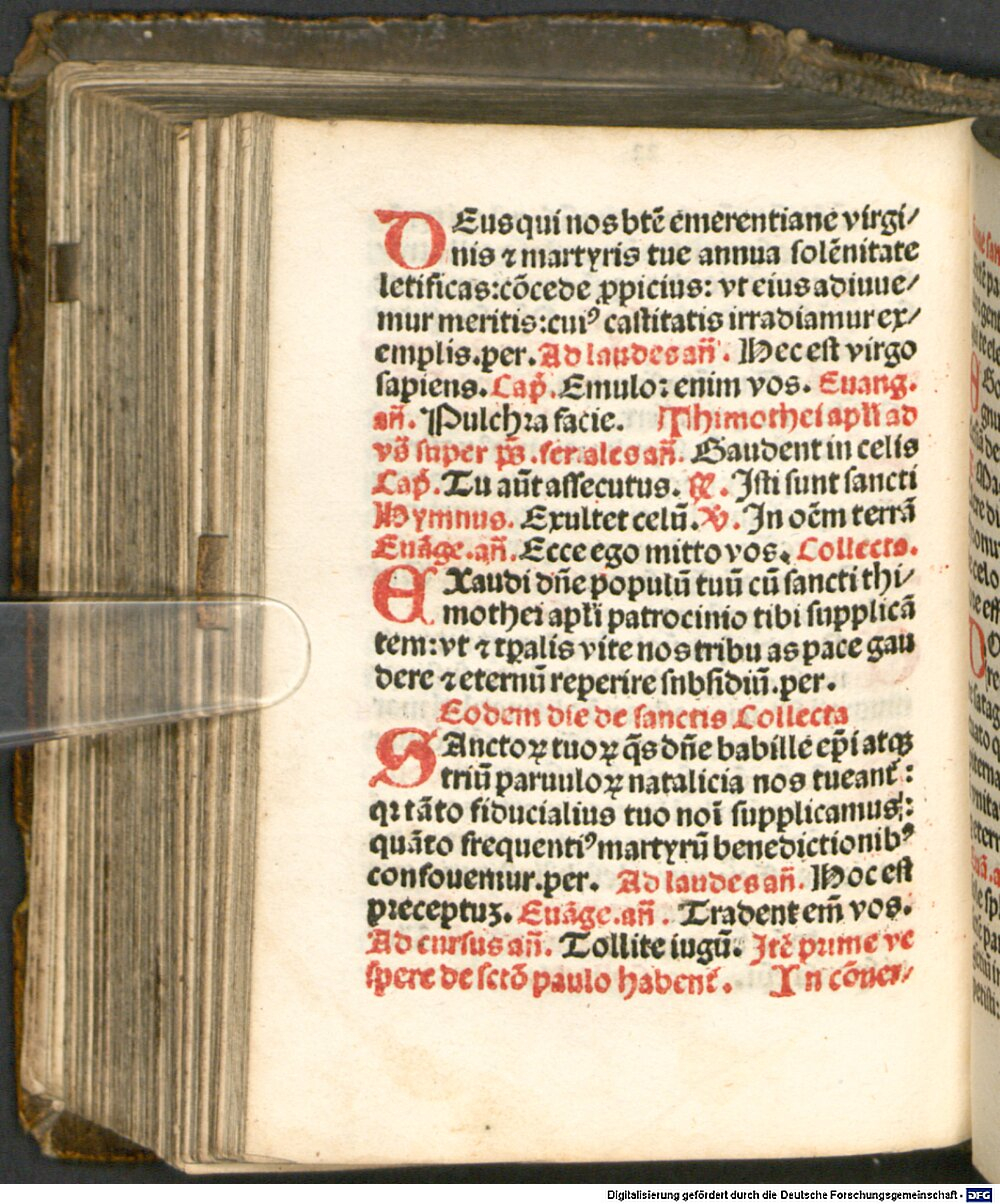 DEus qui nos btē emerentiane virgi/
nis ⁊ martyris tue annua solēnitate
letificas: cōcede ꝓpicius: vt eius adiuue/
mur meritis: cuiꝰ castitatis irradiamur ex/
emplis. per. Ad laudes añ. Hec est virgo
sapiens. Cap̄. Emulor enim vos. Euang.
añ. Pulchra facie. Thimothei apl̄i ad
vs̄ super ps̄. feriales añ. Gaudent in celis
Cap̄. Tu aūt assecutus. ℟. Isti sunt sancti
Hymnus. Exultet celū. ℣. In oēm terrā
Euāge. añ. Ecce ego mitto vos. Collecta.
EXaudi dn̄e populū tuū cū sancti thi/
mothei apl̄i patrocinio tibi supplicā
tem: vt ⁊ tp̄alis vite nos tribuas pace gau
dere ⁊ eternū reperire subsidiū. per.
Eodem die de sanctis Collecta
SAnctoꝝ tuoꝝ q̄s dn̄e babille ep̄i atqꝫ
triū paruuloꝝ natalicia nos tueant᷑:
qr tāto fiducialius tuo noī supplicamus:
quāto frequentiꝰ martyrū benedictionibꝰ
confouemur. per. Ad laudes añ. Hoc est
preceptuꝫ. Euāge. añ. Tradent em̄ vos.
Ad cursus añ. Tollite iugū. Itē prime ve
spere de sctō paulo habent᷑. In cōuer/
Digitalisierung gefördert durch die Deutsche Forschungsgemeinschaft - DFG